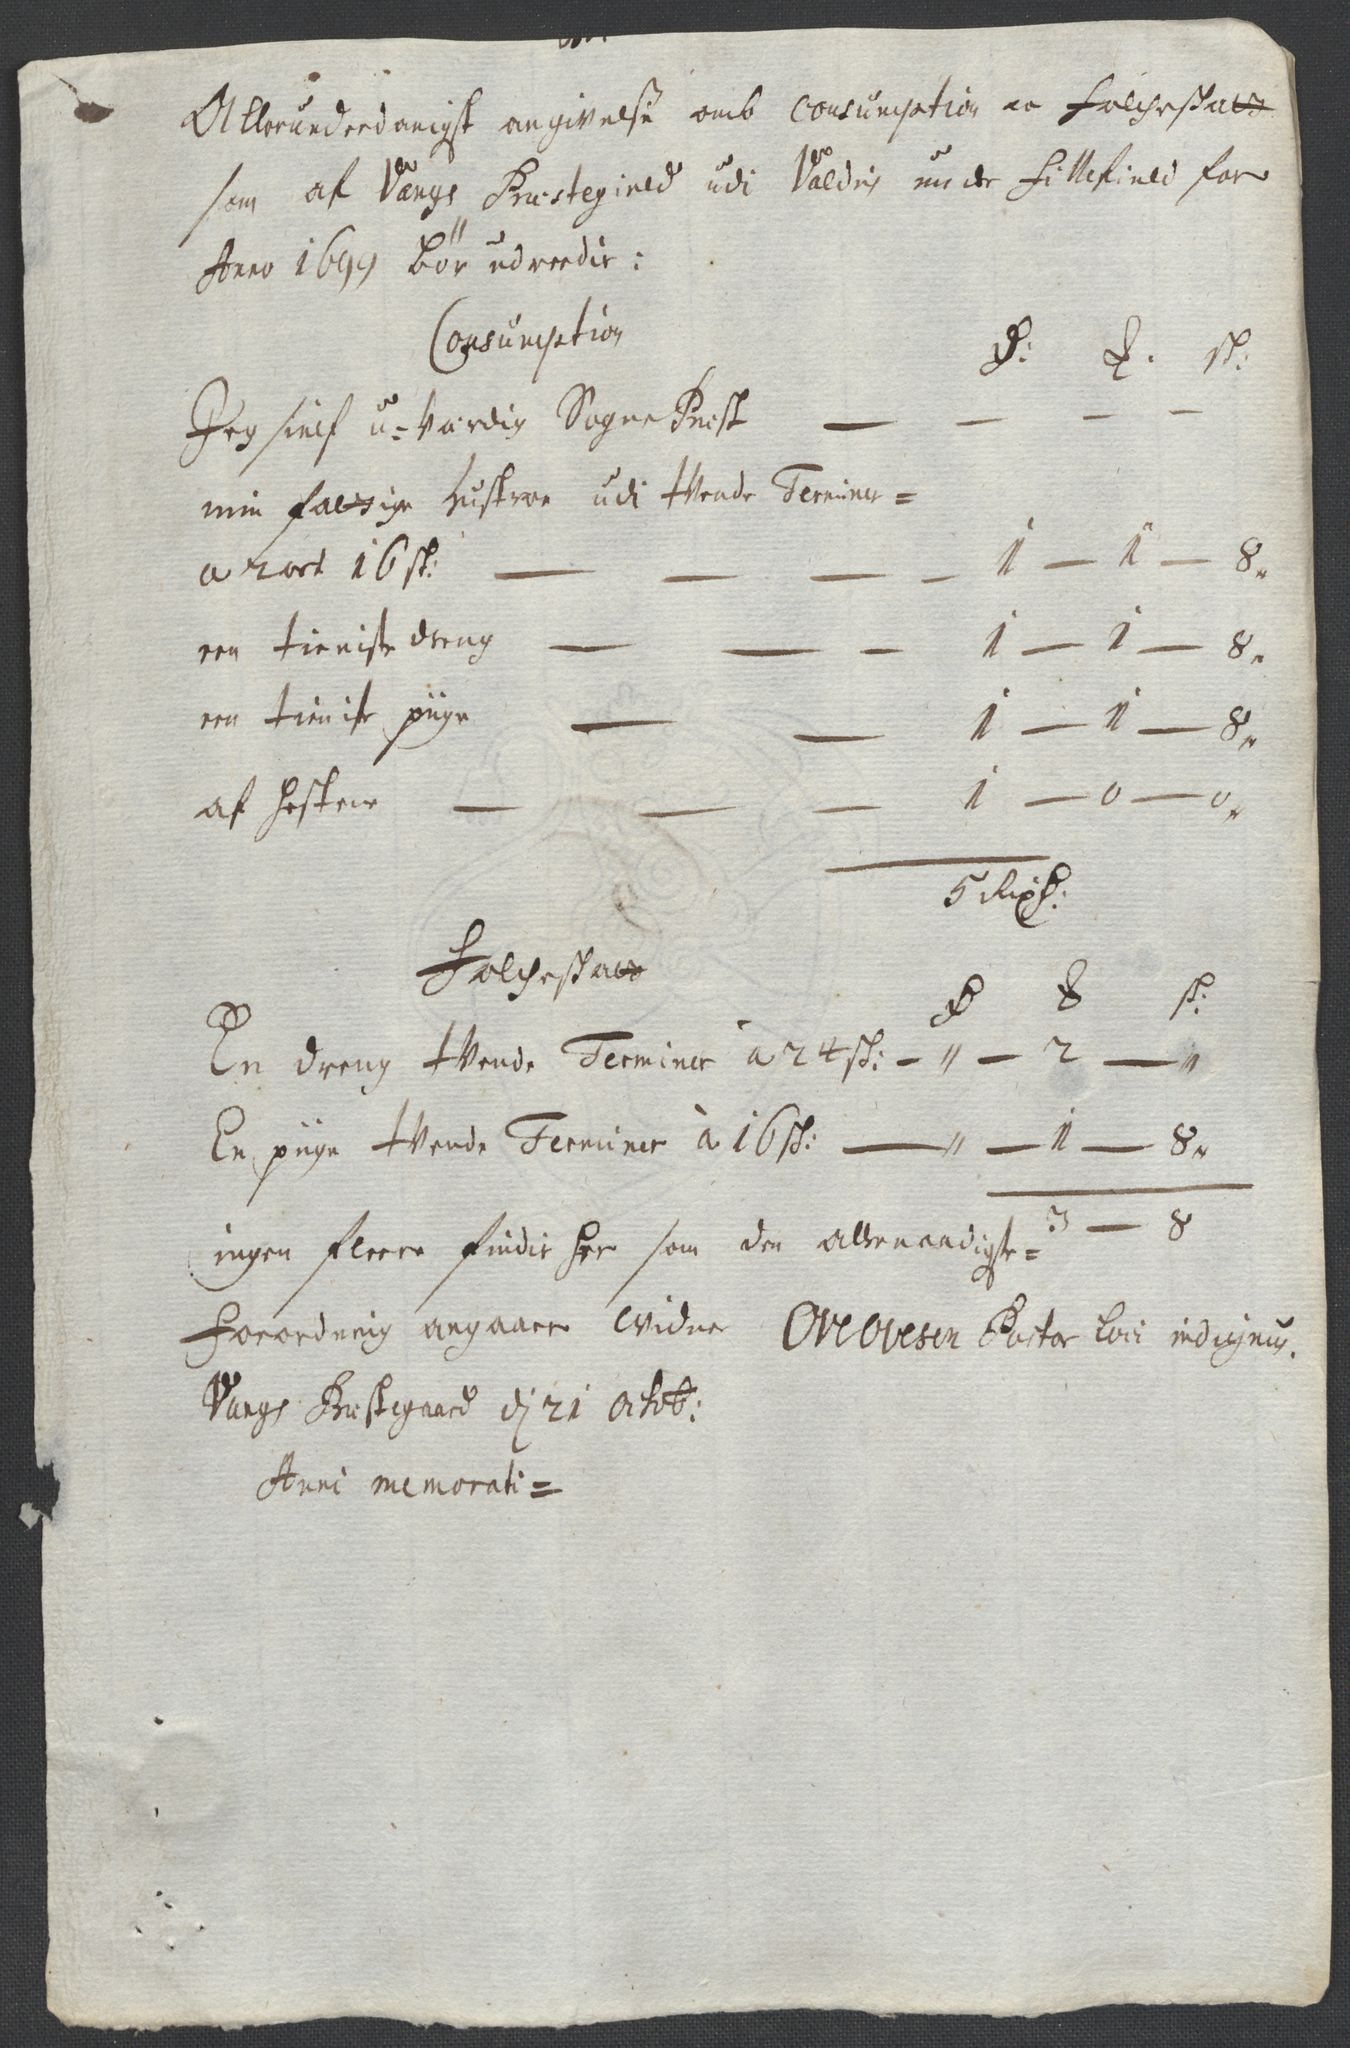 Allerunderdanigst angivelse omb Consumption oc Folcheskatt
som af Vangs Præstegield udi Valdris under Fillefield for
Anno 1699 bör udreedis:
Consumption
Rd: ort. sk:
Jeg sielf u-værdig Sogne Præst — — — —
min fattige hustroe udi tvende Terminer=
a 2 ort 16 sk: — — — — 1 — 1 — 8„
een tieniste dreng — — — 1 — 1 — 8„
een tieniste piige — — 1 — 1 — 8„
af hester — — — 1 — 0 — 0„
5 Rixd:
Folcheskatt
Rd ort sk:
En dreng tvende Terminer à 24 sk: — „ — 2 — „
En piige tvende Terminer à 16 sk: — „ — 1 — 8„
3 — 8
ingen fleere findis her som den allernaadigste=
Forordning angaaer Vidner Ove Ovesen Pastor loci indignus.
Vangs Præstegaard dj 21 Octob:
Anni memorati=